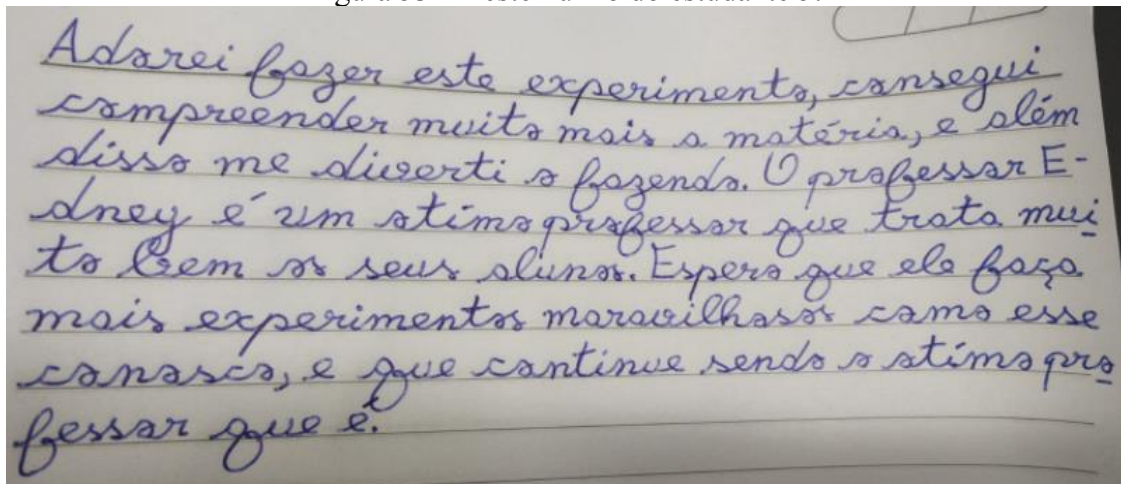 Adorei fazer este experimento, consegui
compreender muito mais a matéria, e além
disso me diverti o fazendo. O professor E-
dney é um otimo professor que trata mui
to bem os seus alunos. Espero que ele faça
mais experimentos maravilhosos como esse
conosco, e que continue sendo o otimo pro
fessor que é.